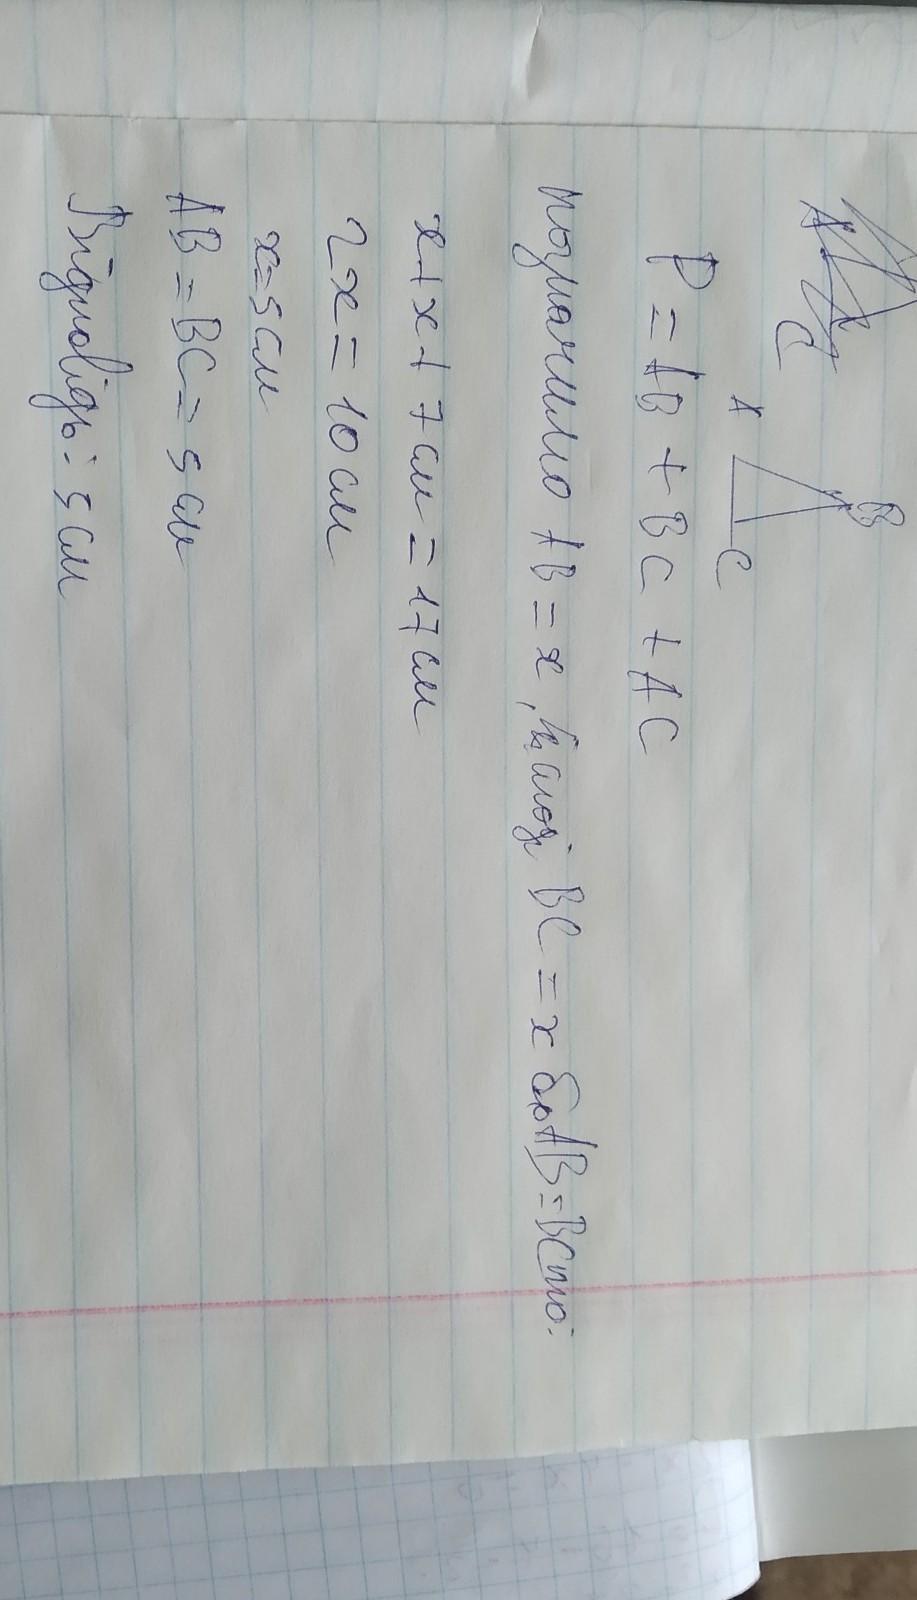 A C
B
A C
P = AB + BC + AC
позначимо AB = x, BC = x бо AB = BC то:
x + x + 7 см = 17 см
2x = 10 см
x = 5 см
AB = BC = 5 см
Відповідь: 5 см